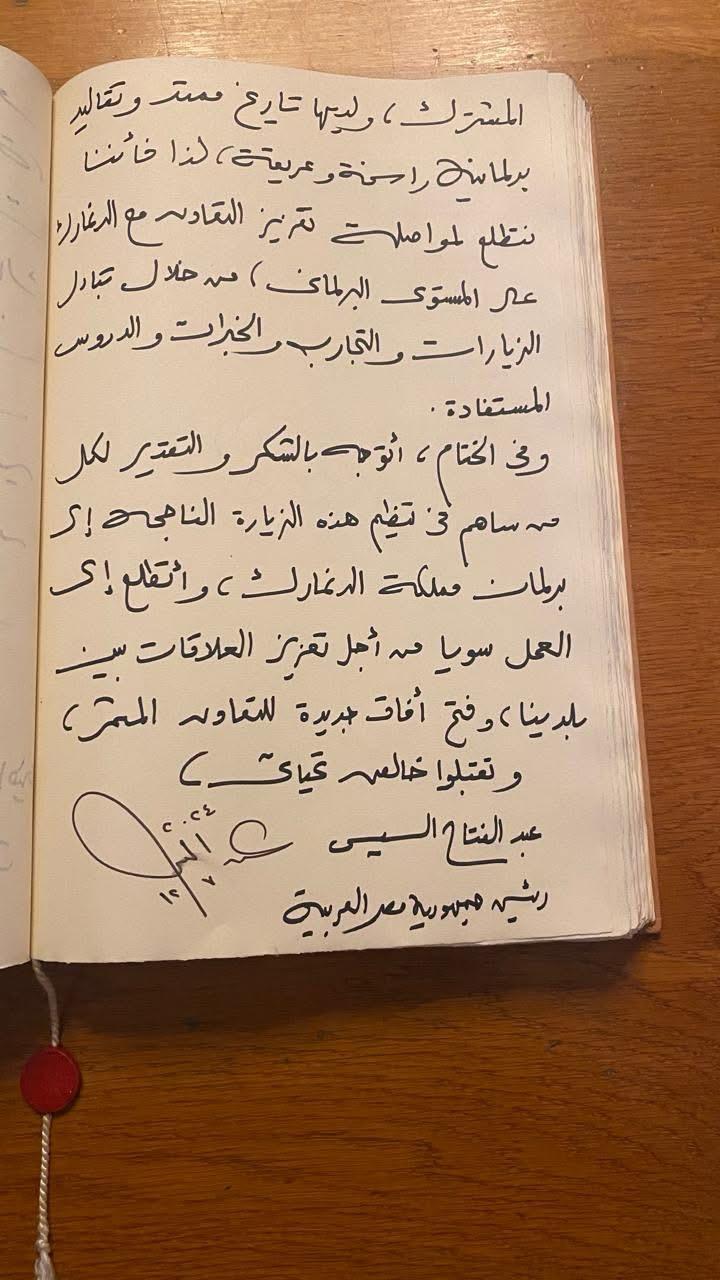 المشترك، ولديها تاريخ ممتد وتقاليد
برلمانية راسخة وعريقة، لذا فأننا
نتطلع لمواصلة تعزيز التعاون مع الدنمارك
على المستوى البرلمانى، من خلال تبادل
الزيارات والتجارب والخبرات والدروس
المستفادة.
وفى الختام، أتوجه بالشكر والتقدير لكل
من ساهم فى تنظيم هذه الزيارة الناجحة إلى
برلمان مملكة الدنمارك، وأتطلع إلى
العمل سويا من أجل تعزيز العلاقات بين
بلدينا، وفتح أفاق جديدة للتعاون المثمر،
وتقبلوا خالص تحياتى،
عبد الفتاح السيسى
رئيس جمهورية مصر العربية
٢٠٢٤
١٢ ٧